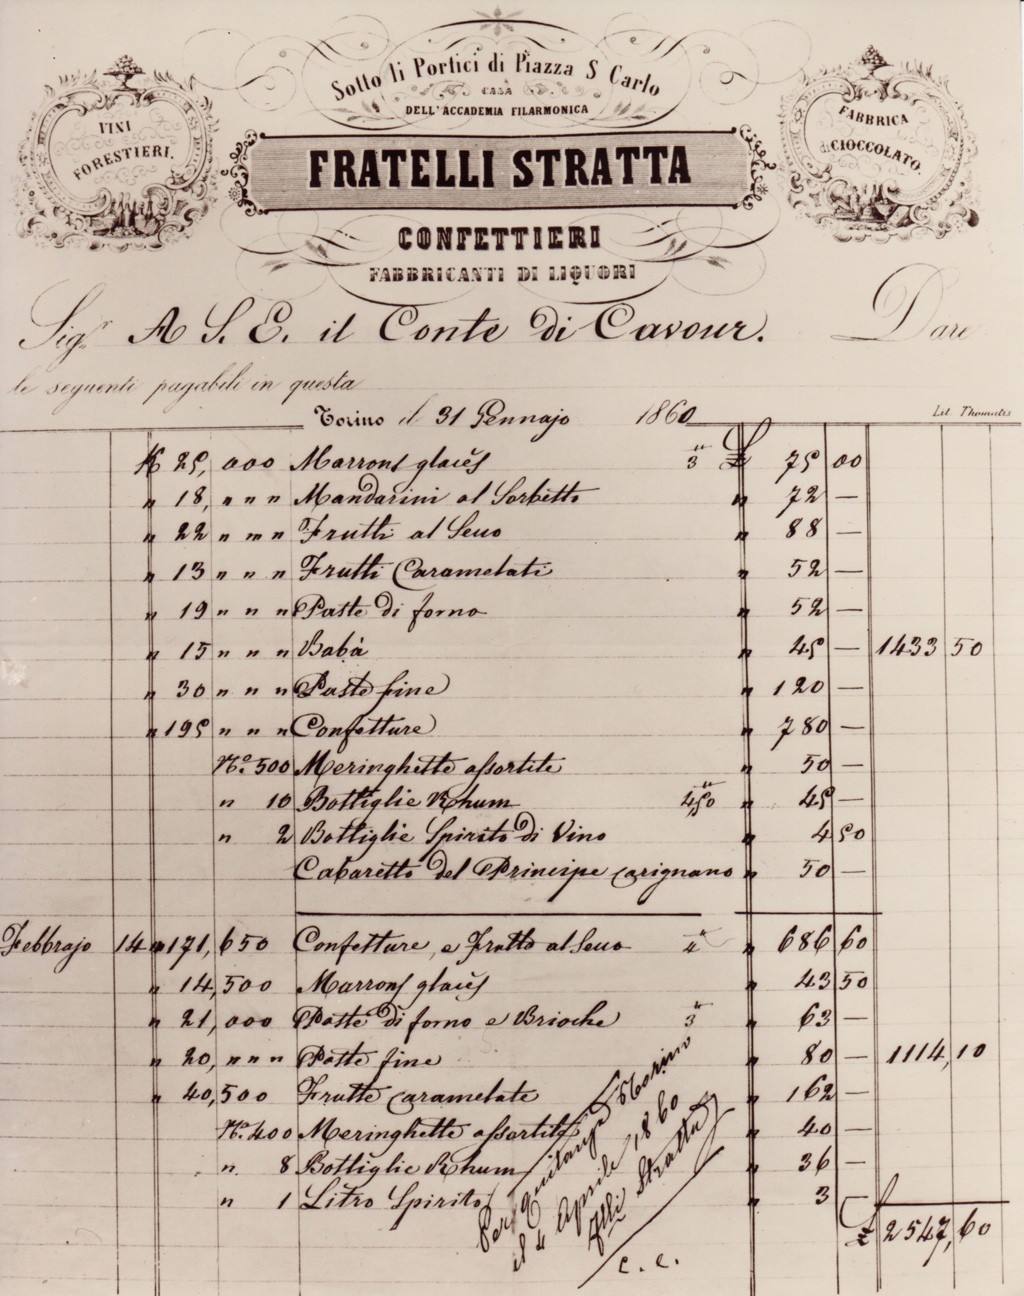 Sotto li Portici di Piazza S Carlo
CASA
DELL'ACCADEMIA FILARMONICA
VINI
FORESTIERI.
FABBRICA
di CIOCCOLATO.
FRATELLI STRATTA
CONFETTIERI
FABBRICANTI DI LIQUORI
Sigr A S. E. il Conte di Cavour. Dare
le seguenti pagabili in questa
Torino il 31 Gennajo 1860
Lit. Thomatis
K 25, 000 Marrons glacès 3 " £ 75 00
" 18, " " " Mandarini al Sorbetto " 72 —
" 22 " " " Frutti al Seuo " 88 —
" 13 " " " Frutti Caramelati " 52 —
" 19 " " " Paste di forno " 52 —
" 15 " " " Babà " 45 — 1433 50
" 30 " " " Paste fine " 120 —
" 195 " " " Confetture " 780 —
No. 500 Meringhette assortite " 50 —
" 10 Bottiglie Rhum 4,50 " 45 —
" 2 Bottiglie Spirito di Vino " 4 50
Cabaretto del Principe Carignano " 50 —
Febbrajo 14 " 171, 650 Confetture, e Frutto al Seuo 4 " " 686 60
" 14, 500 Marrons glacès " 43 50
" 21, 000 Paste di forno e Brioche 3 " " 63 —
" 20, " " " Paste fine " 80 — 1114,10
" 40,500 Frutte caramelate " 162 —
No. 400 Meringhette assortite " 40 —
" 8 Bottiglie Rhum " 36 —
" 1 Litro Spirito " 3
£ 2547,60
Per quitanza Torino
il 4 Aprile 1860
Flli Stratta
C. C.